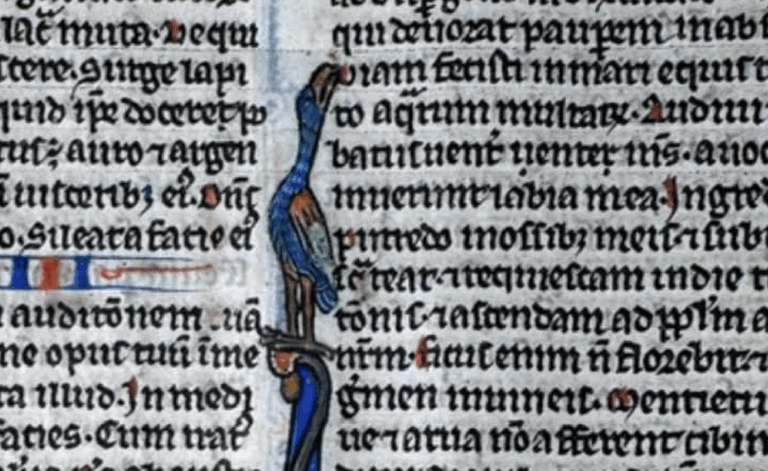 lac̄ muta. Ve qui
scere. Surge lapi
quid ip̄e docere ꝑo
tus; auro ⁊ argen
ī uisceribꝫ ei᷒. Dn̄s
o. Sileat a facie ei᷒
auditōnem tuā
ne opus tuū ī me
ta illud. In medi
facies. Cum irat᷒
qui deuorat pauꝑem in ab
uiam fecisti in mari equis t
to aq̄rum multaꝝ. Audiui
batus uenter m̄s. a uoc
muerunt labia mea. Ingre
putredo in ossibꝫ meis ⁊ sub
scateat. ⁊ requiescam in die t
tōnis. ⁊ ascendam ad ppl̄m a
nr̄m. ficus enim n̄ florebit ⁊
ḡmen in uineis. Mentietu
ue ⁊ arua nō afferent cibu